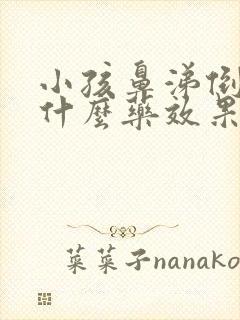 小孩鼻涕倒
什麼藥效果
菜菜子nanako